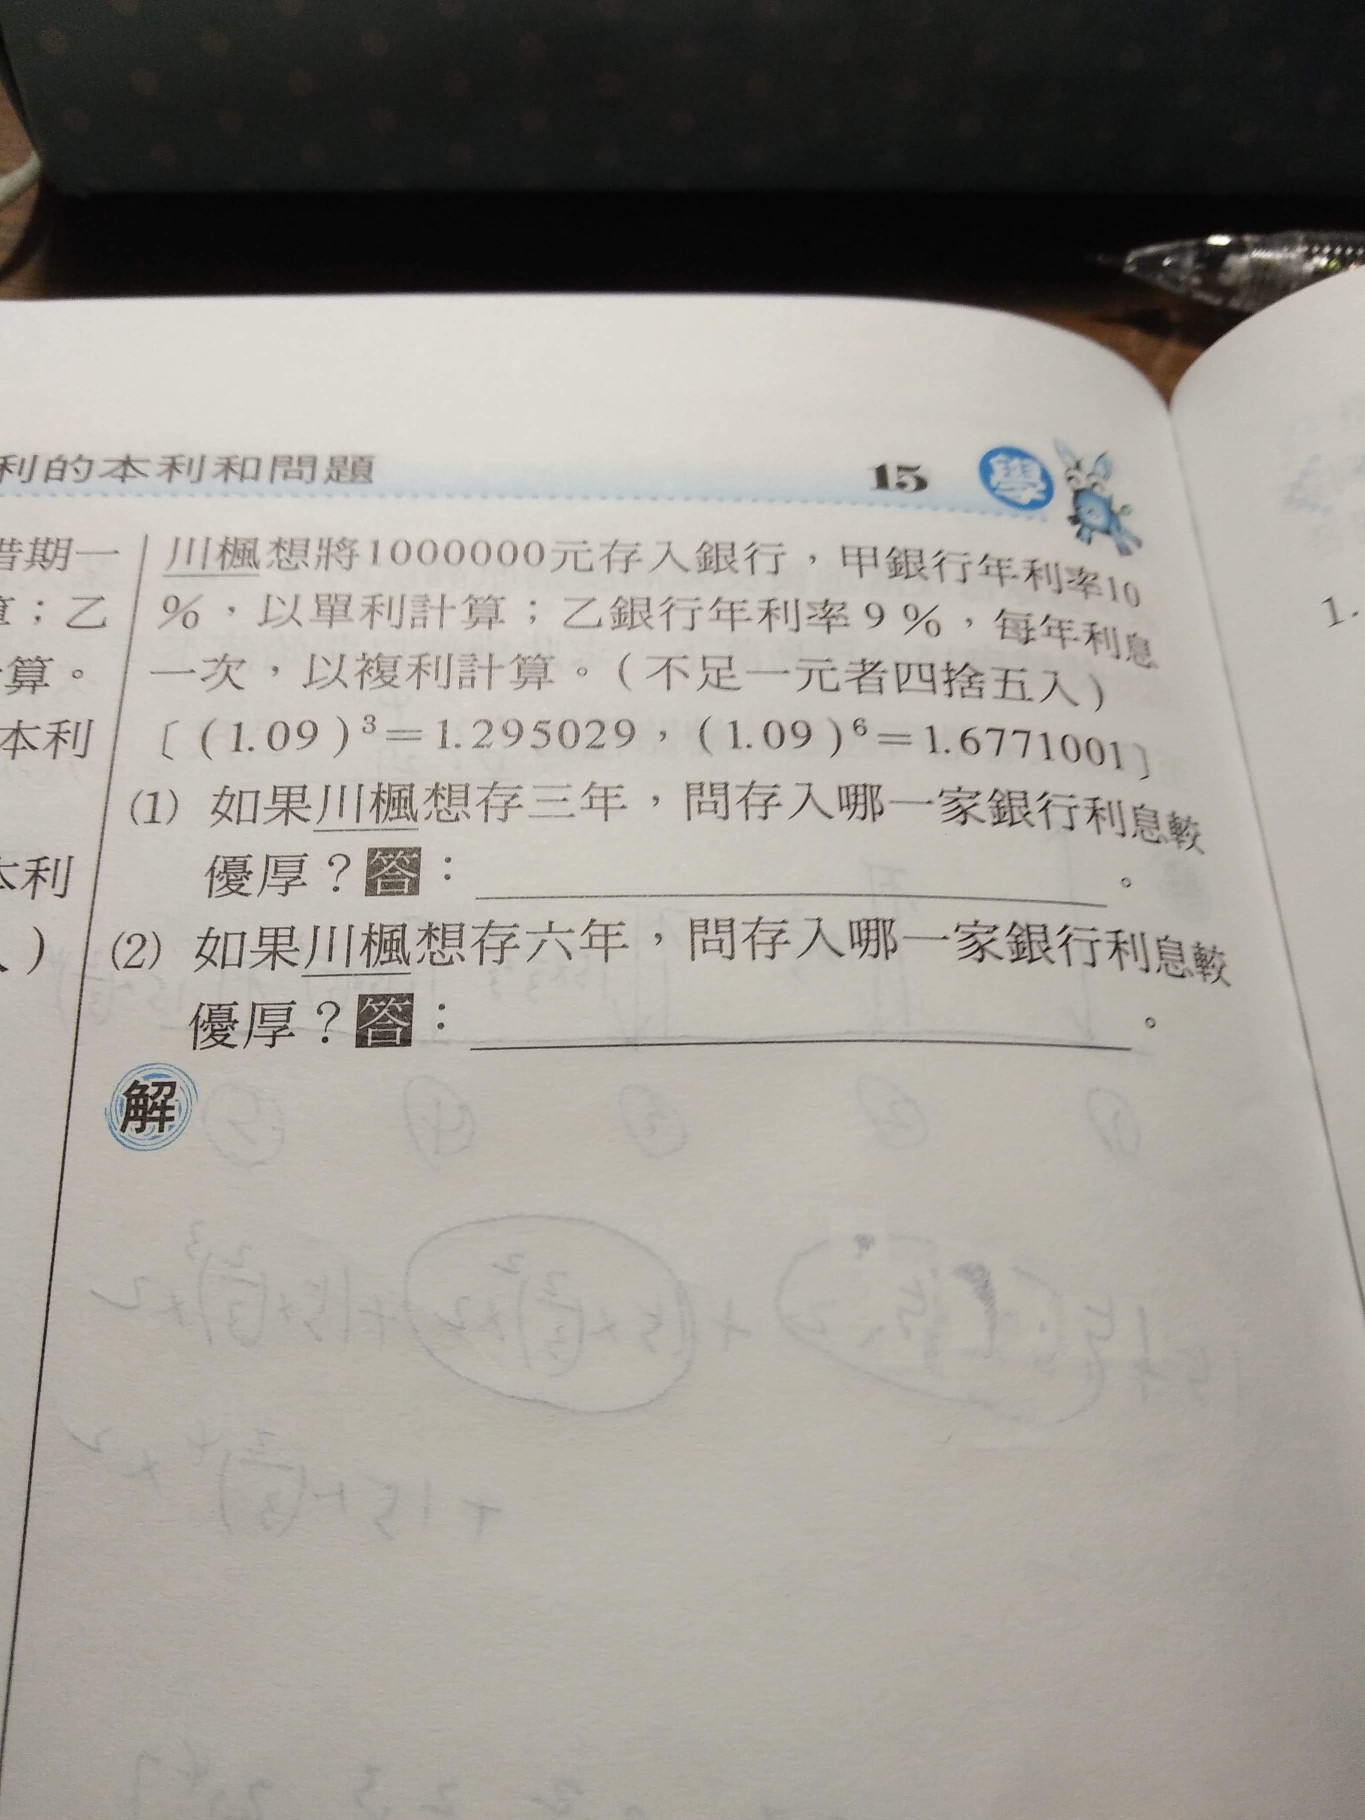 利的本利和問題
15 學
川楓想將1000000元存入銀行，甲銀行年利率10
%，以單利計算；乙銀行年利率9%，每年利息
一次，以複利計算。(不足一元者四捨五入)
〔(1.09)³＝1.295029，(1.09)⁶＝1.6771001〕
(1) 如果川楓想存三年，問存入哪一家銀行利息較
優厚？答：＿＿＿＿＿＿。
(2) 如果川楓想存六年，問存入哪一家銀行利息較
優厚？答：＿＿＿＿＿＿。
解
期一
；乙
算。
本利
本利
)
1.